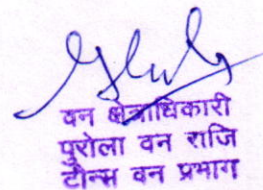 वन क्षेत्राधिकारी
पुरोला वन राजि
टौन्स वन प्रभाग